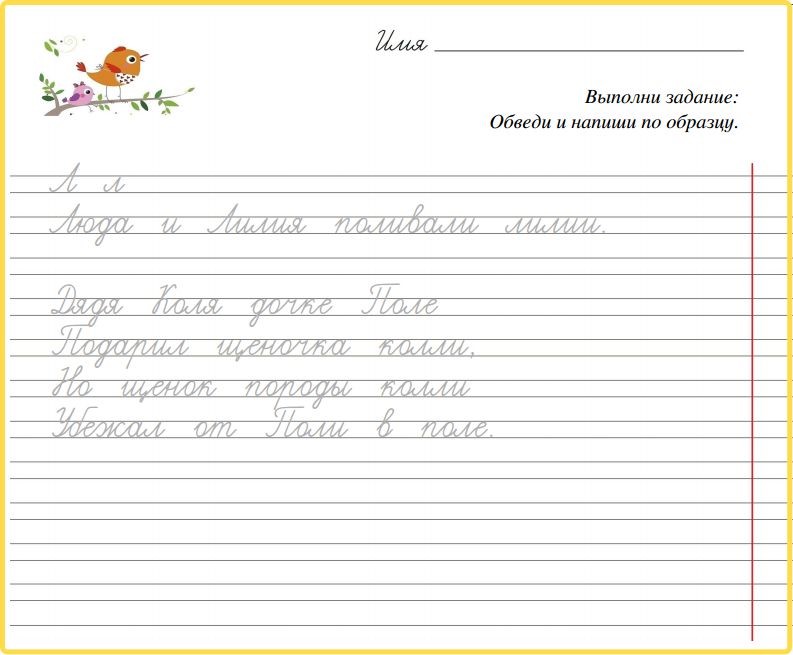 Имя
Выполни задание:
Обведи и напиши по образцу.
Л л
Люда и Лилия поливали лилии.
Дядя Коля дочке Поле
Подарил щеночка колли,
Но щенок породы колли
Убежал от Поли в поле.